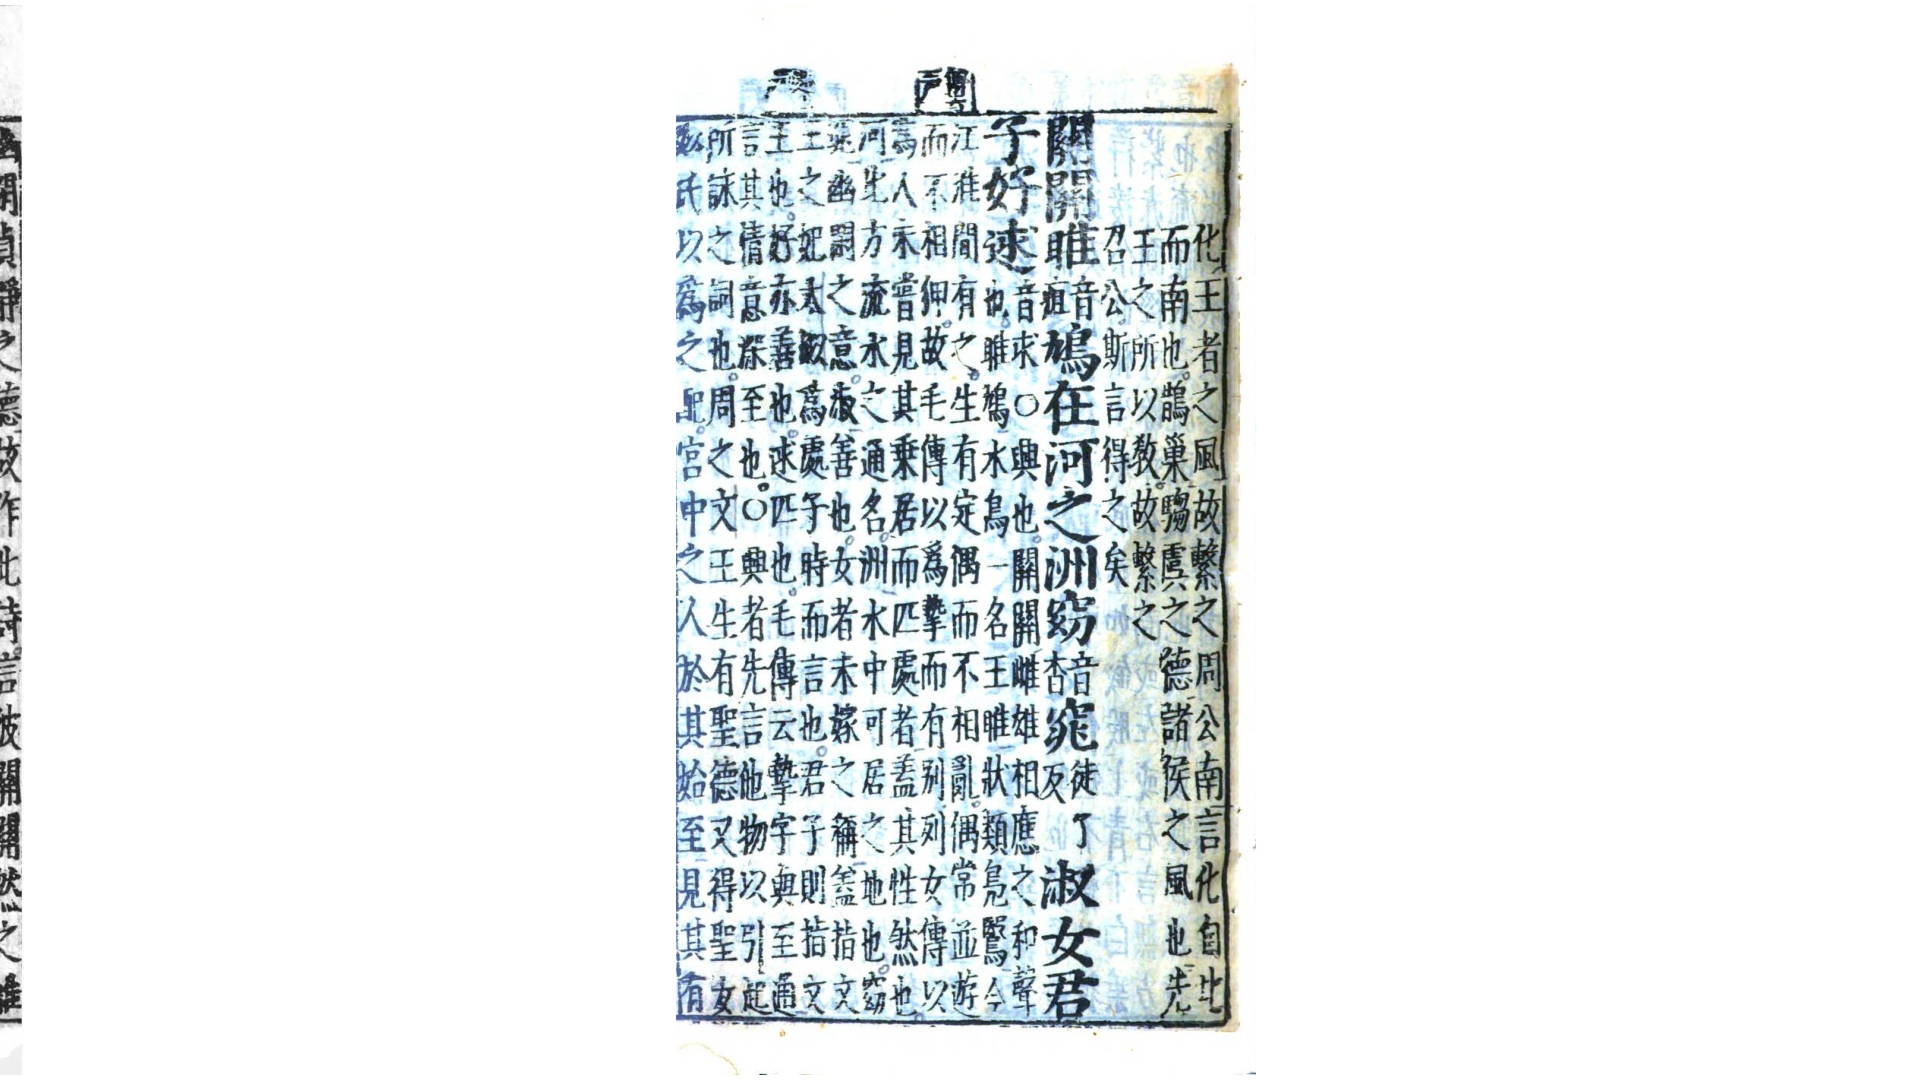 化王者之風故繫之周公南言化自北
而南也。鵲巢騶虞之德諸侯之風也先
王之所以教。故繫之
召公斯言得之矣
關關雎音疽鳩在河之洲窈音杳窕徒了反淑女君
子好逑音求○興也。關關雌雄相應之和聲
也。雎鳩水鳥一名王雎狀類鳧鷖今
江淮間有之。生有定偶而不相亂。偶常並遊
而不相狎。故毛傳以爲摯而有别列女傳以
爲人未嘗見其乗居而匹處者蓋其性然也。
河北方流水之通名。洲水中可居之地也。窈
窕幽閒之意。淑善也。女者未嫁之稱蓋指文
王之妃太姒爲處子時而言也。君子則指文
王也。好亦善也。逑匹也。毛傳云摯字與至通
言其情意深至也。○興者先言他物以引起
所詠之詞也。周之文王生有聖德又得聖女
姒氏以爲之配。宮中之人於其始至見其有
幽閒貞靜之德故作此詩言彼關關然之雎